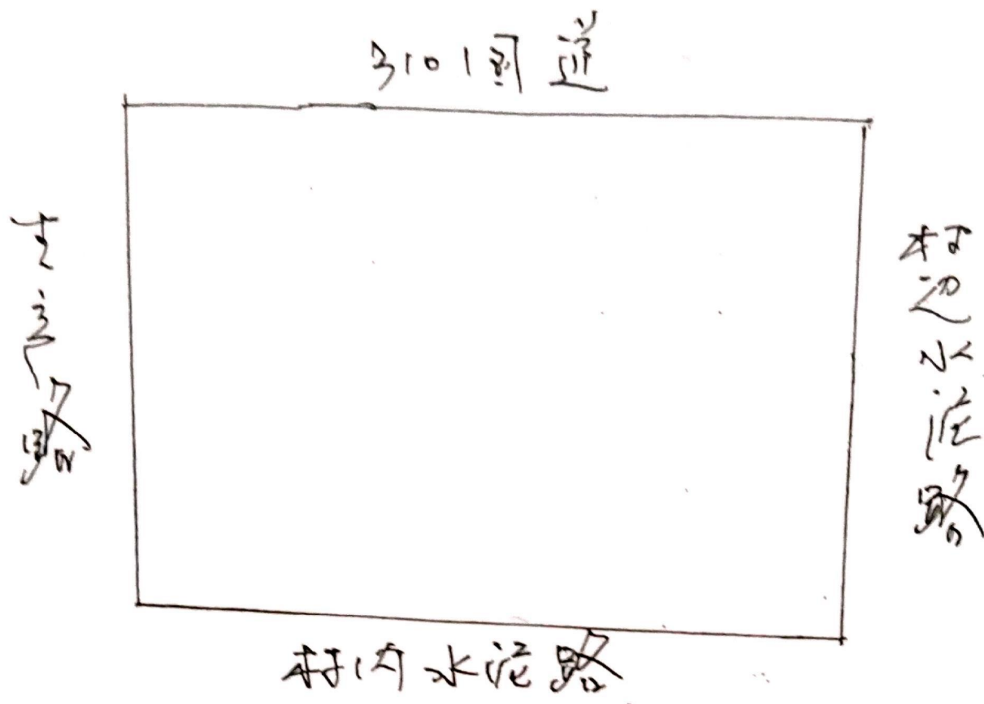 310国道
生产路
村边水泥路
村内水泥路